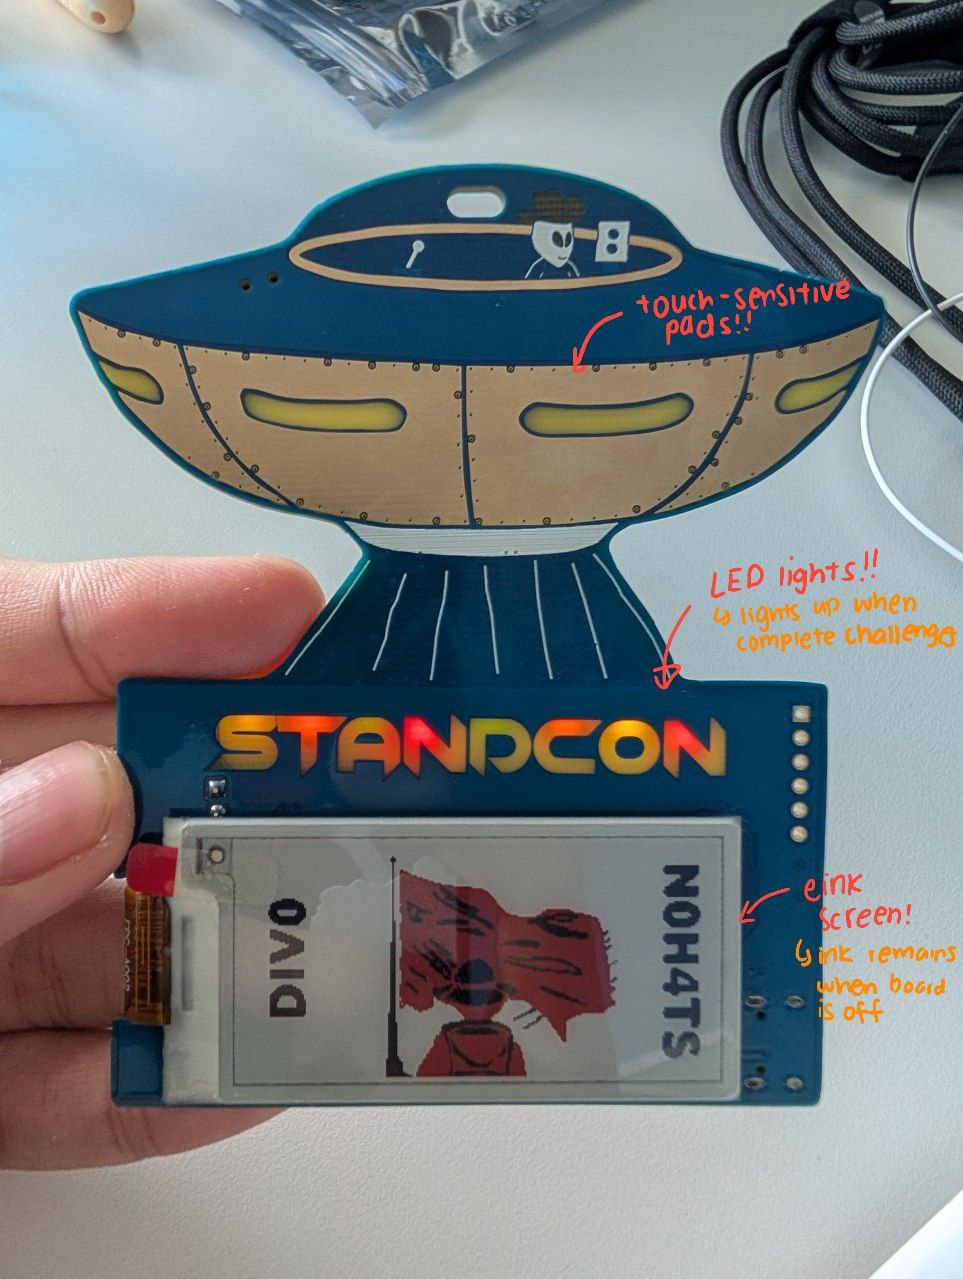 touch-sensitive
pads!!
LED lights!!
↳ lights up when
complete challenges
STANDCON
DIV0
N0H4TS
eink
screen!
↳ ink remains
when board
is off